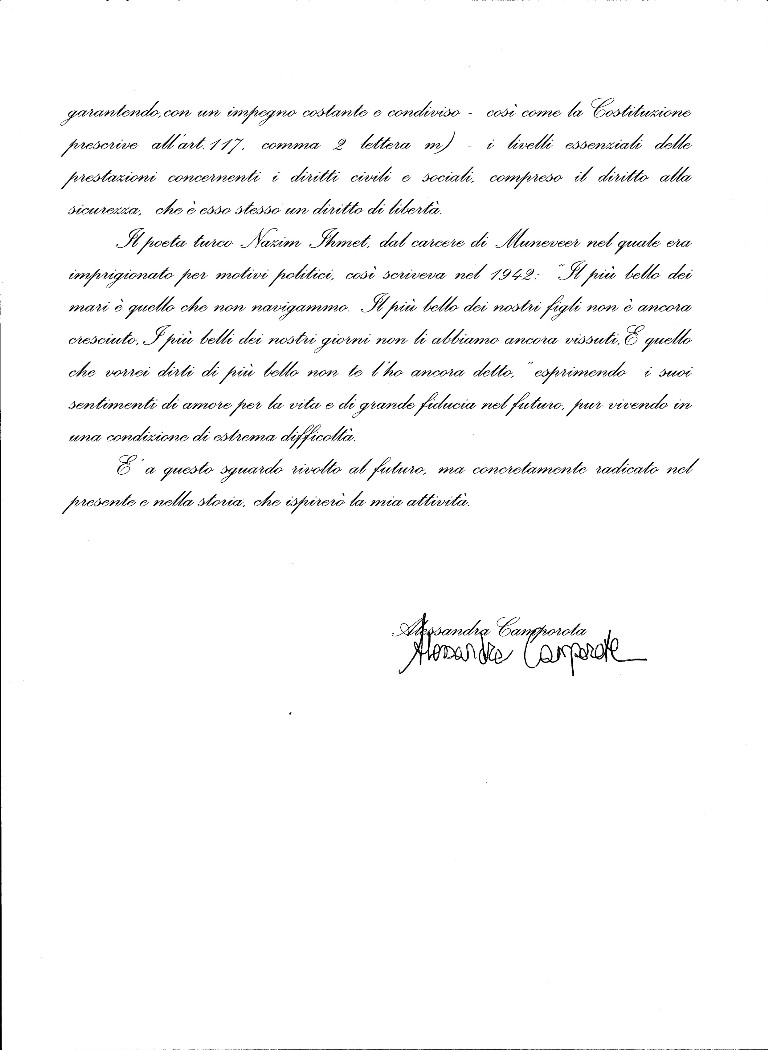 garantendo,con un impegno costante e condiviso - così come la Costituzione
prescrive all'art.117, comma 2 lettera m) - i livelli essenziali delle
prestazioni concernenti i diritti civili e sociali, compreso il diritto alla
sicurezza, che è esso stesso un diritto di libertà.
Il poeta turco Nazim Ihmet, dal carcere di Muneveer nel quale era
imprigionato per motivi politici, così scriveva nel 1942: "Il più bello dei
mari è quello che non navigammo. Il più bello dei nostri figli non è ancora
cresciuto. I più belli dei nostri giorni non li abbiamo ancora vissuti.E quello
che vorrei dirti di più bello non te l'ho ancora detto, "esprimendo i suoi
sentimenti di amore per la vita e di grande fiducia nel futuro, pur vivendo in
una condizione di estrema difficoltà.
E' a questo sguardo rivolto al futuro, ma concretamente radicato nel
presente e nella storia, che ispirerò la mia attività.
Alessandra Camporota
Alessandra Camporota